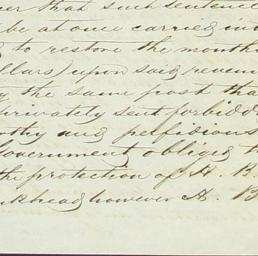 that such sentence
be at once carried in
to restore the month
dollars) upon said reven
the same post tha
privately sent forbidd
and perfidious
Government obliged t
the protection of H. B.
head however H. B